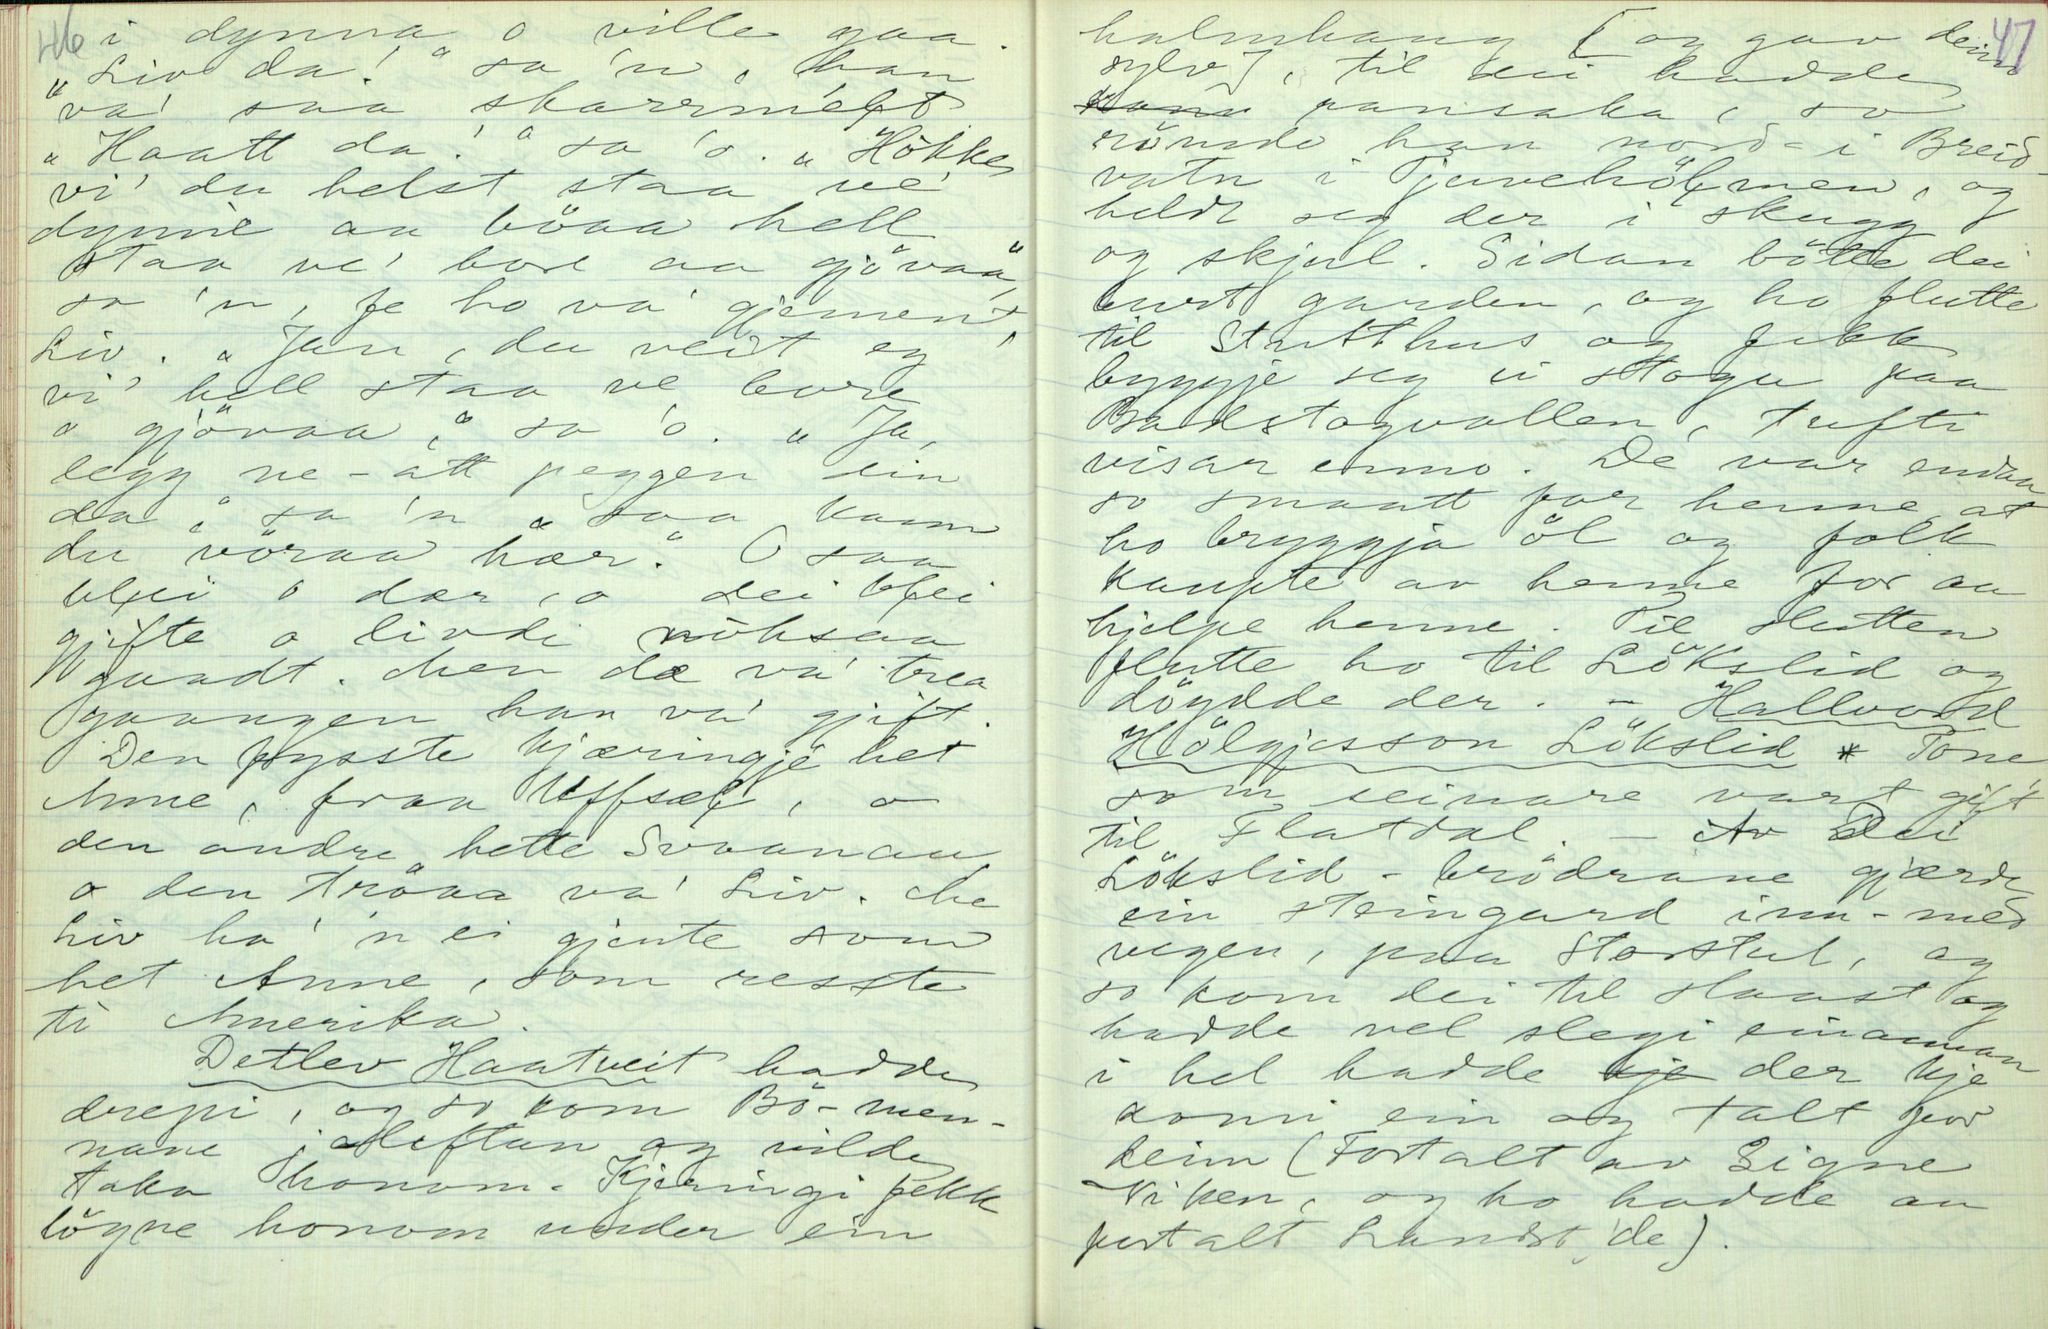 46
i dynna o ville gaa.
"Liv da!" sa 'n, han
va' saa skarrmælt
"Haatt da!" sa 'o. "Hökke
vi' du helst staa ve'
dynnè aa böaa hell
staa ve' bore aa gjövaa,"
sa 'n, fe ho va' gjement,
Liv. "Jau, du veit eg
vi' hell staa ve bore
o gjövaa," sa 'o. "Ja,
legg ne-att peggen din
da," sa 'n, "saa kann
du vöraa hær." O saa
blei o dær, o dei blei
gjifte o livdi nöksaa
gaadt. Men dæ va' trea
gaangen han va' gjift.
Den fysste kjæringjè het
Anne, fraa Uffsæl, o
den andre hette Svaanau
o den tröaa va' Liv. Me
Liv ha' 'n ei gjente som
het Anne, som resste
ti Amerika.
Detlev Haatveit hadde
drepi, og so kom Bö-men-
nane i Heftan og vilde
taka honom. Kjeringi fekk
löyne honom under ein
47
halmhaug [og gav deim
sylv], til dei hadde
ransaka, so
römde han nord-i Breid-
vatn i Juvehölmen, og
heldt seg der i skugg
og skjul. Sidan bötte dei
burt garden, og ho flutte
til Statthus og fekk
byggje seg ei stogu paa
Bakstogvollen, tufti
visar enno. De var endaa
so smaatt for henne at
ho bryggja öl og folk
kaupte av henne for aa
hjelpe henne. Til slutten
flutte ho til Lökslid og
döydde der. – Hallvord
Hölgjesson Lökslid * Tone
som seinare vart gift
til Flatdal. – Av Dei
Lökslid-brödrane gjærde
ein steingard inn-med
vegen, paa Storstul, og
so kom dei til slaast og
hadde vel slegi einannan
i hel hadde kje der kje
komi ein og talt for
deim (Fortalt av Signe
Viken, og ho hadde au
fortalt Landst. de).